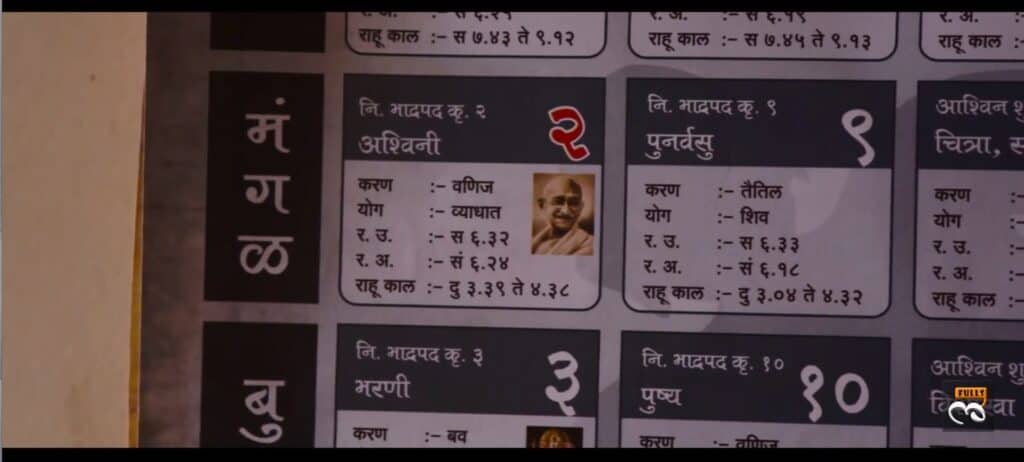 राहू काल :– स ७.४३ ते ९.१२
राहू काल :– स ७.४५ ते ९.१३
राहू काल :–
मंगळ
नि. भाद्रपद कृ. २
अश्विनी
२
करण :– वणिज
योग :– व्याघात
र. उ. :– स ६.३२
र. अ. :– सं ६.२४
राहू काल :– दु ३.३९ ते ४.३८
नि. भाद्रपद कृ. ९
पुनर्वसु
९
करण :– तैतिल
योग :– शिव
र. उ. :– स ६.३३
र. अ. :– सं ६.१८
राहू काल :– दु ३.०४ ते ४.३२
आश्विन शु
चित्रा,
करण :–
योग :–
र. उ. :–
र. अ. :–
राहू काल :–
बु
नि. भाद्रपद कृ. ३
भरणी
३
करण :– बव
नि. भाद्रपद कृ. १०
पुष्य
१०
करण :– वणिज
आश्विन शु
FULLY